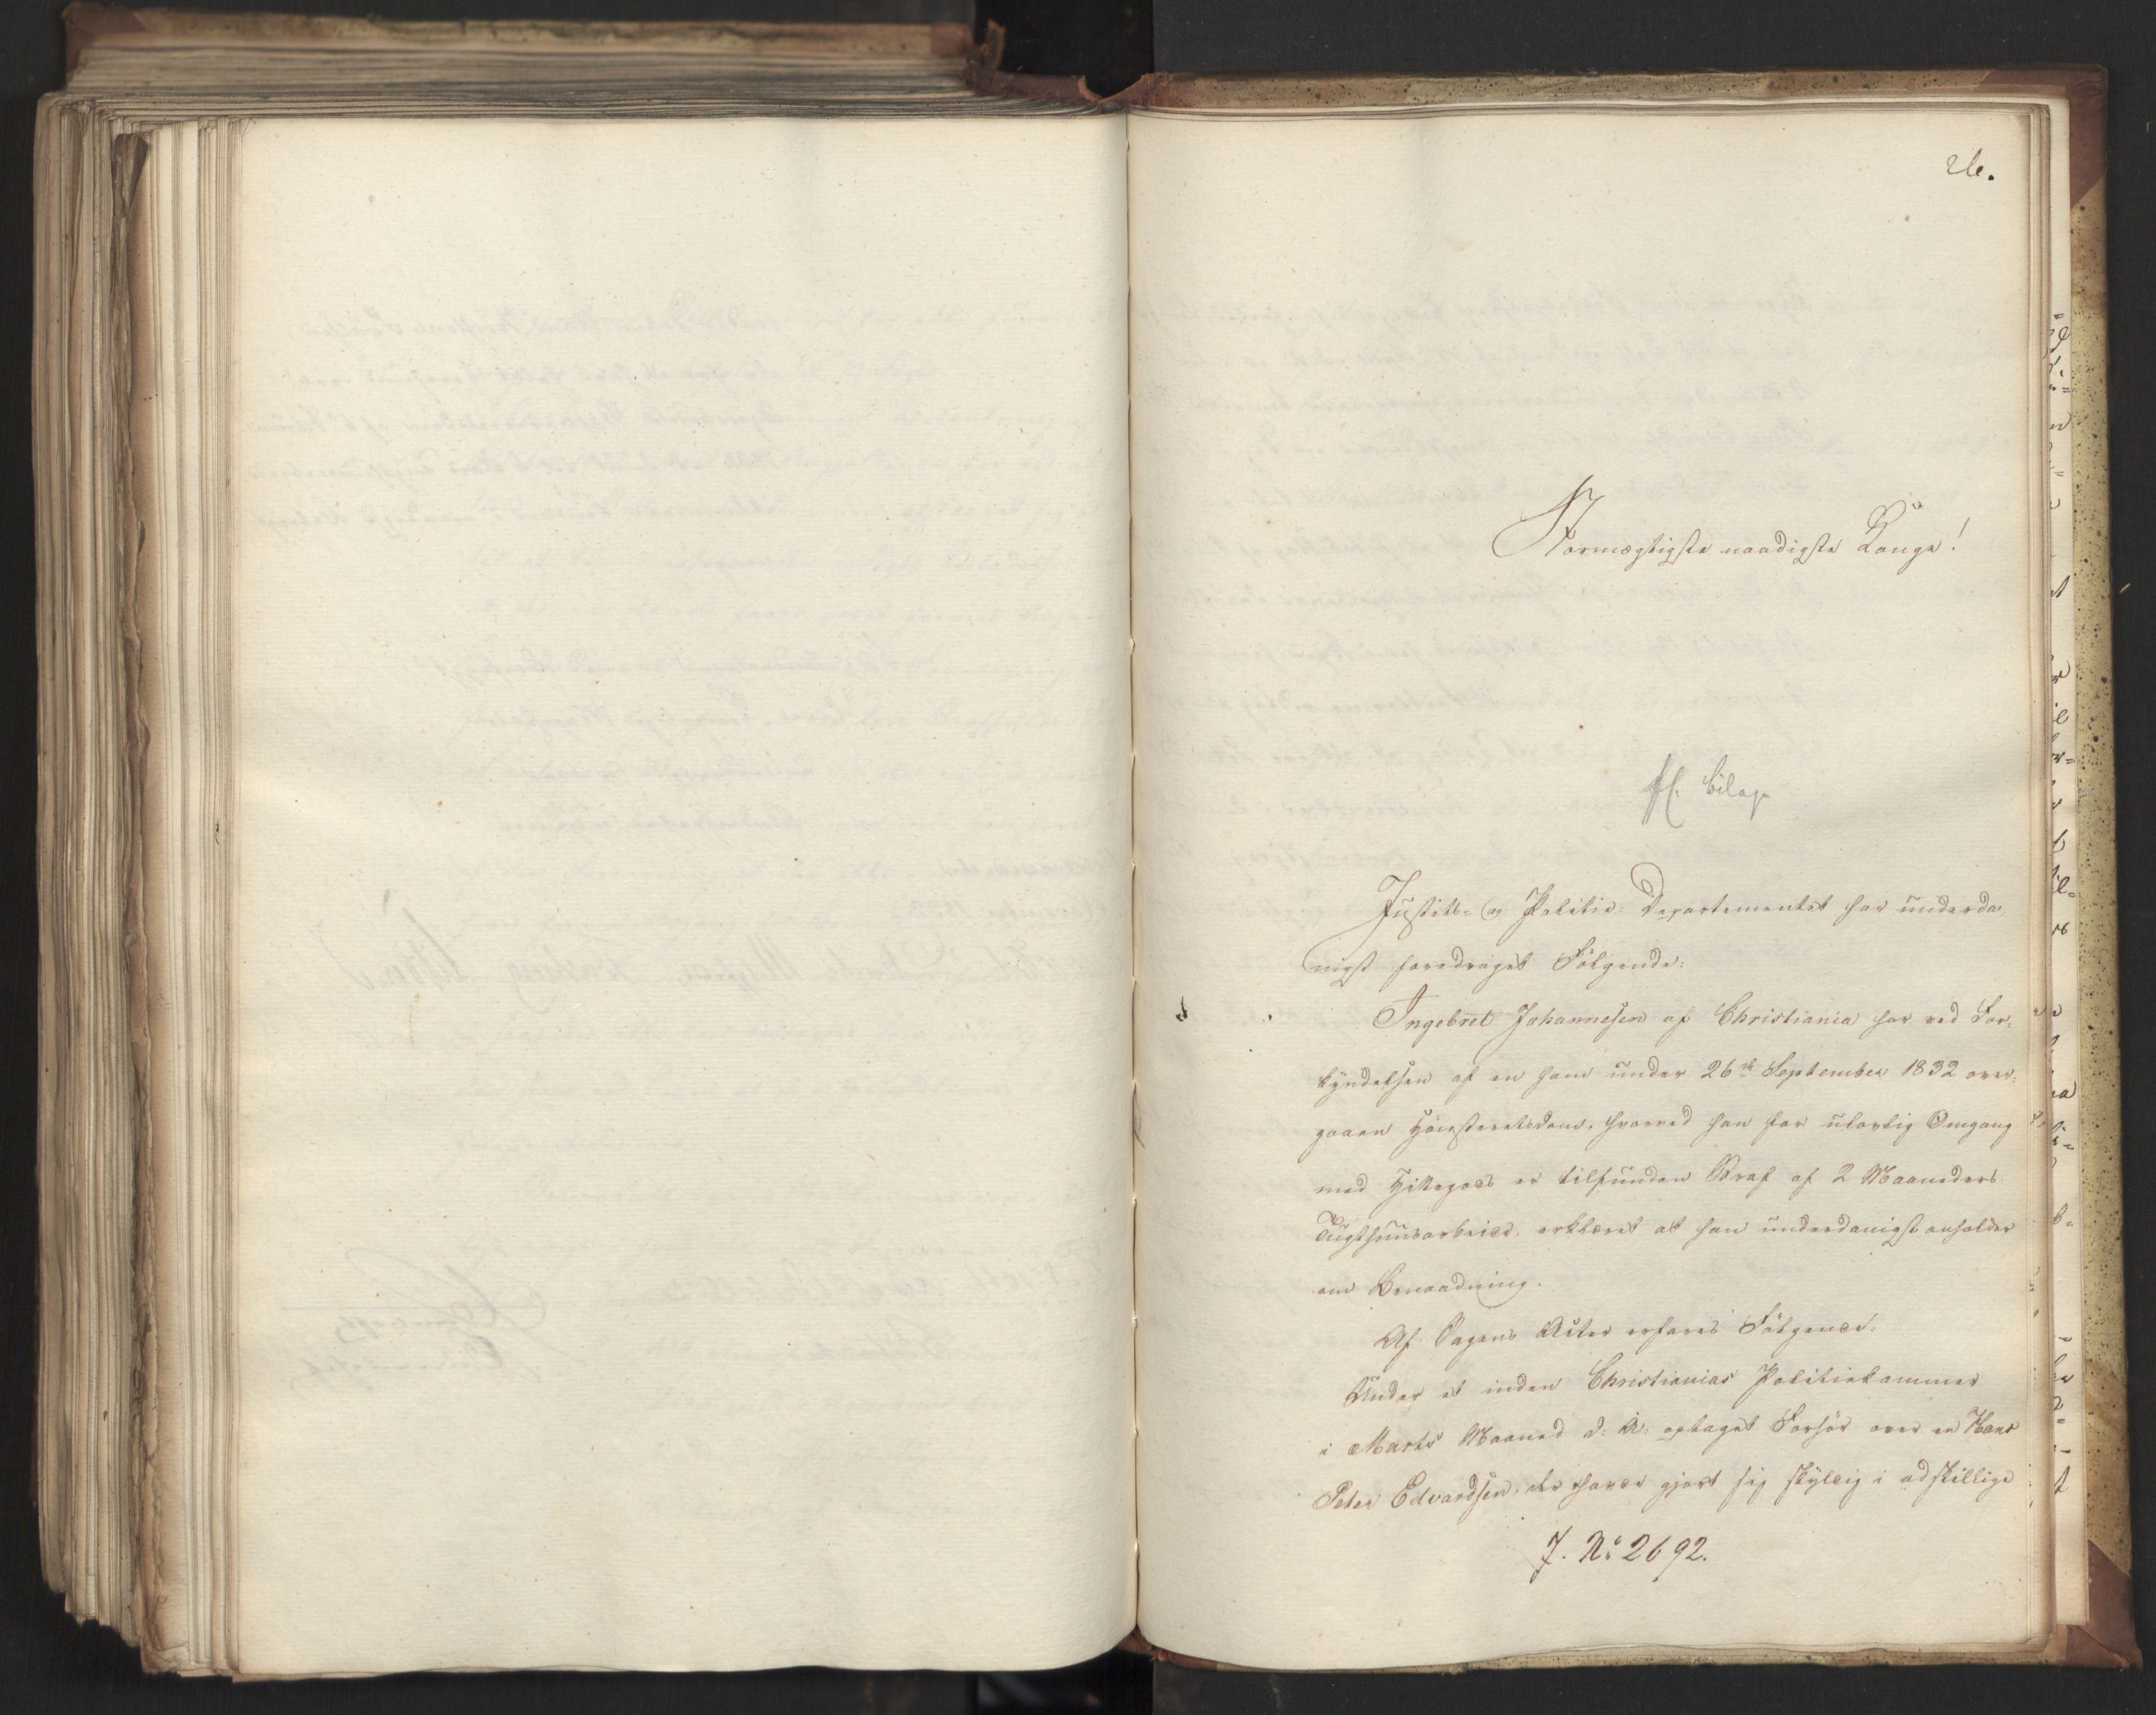 26.
Stormægtigste naadigste Konge!
bilag
Justits- og Politie-Departementet har underda-
nigst foredraget Følgende:
Ingebret Johannesen af Christiania har ved For-
kyndelsen af en ham under 26de September 1832 over-
gaaen Høiesteretsdom, hvorved han for ulovlig Omgang
med Hittegods er tilfunden Straf af 2 Maaneders
Tugthuusarbeide, erklæret at han underdanigst anholder
om Benaadning.
Af Sagens Akter erfares Følgende:
Under et inden Christianias Politiekammer
i Marts Maaned d: A: optaget Forhør over en Hans
Peter Edvardsen, der havde gjort sig skyldig i adskillige
J. No 2692.